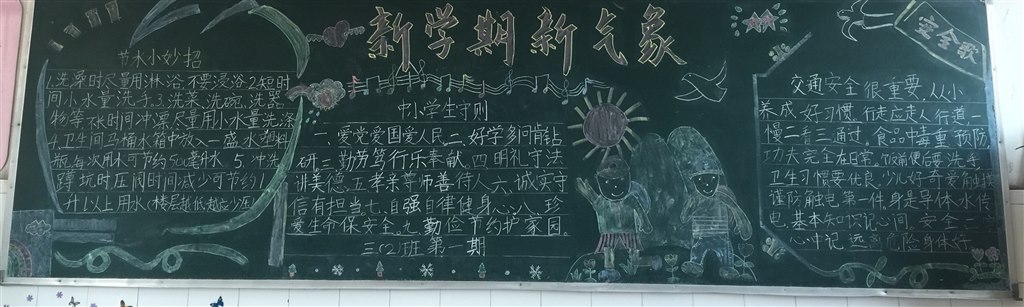 新学期新气象
节水小妙招
1.洗澡时尽量用淋浴,不要浸浴2.短时
间小水量洗手.3.洗菜、洗碗、洗器
物等不长时间冲,尽量用小水量洗涤
4.卫生间马桶水箱中放入一盛水塑料
瓶,每次用水可节约500毫升水.5.冲洗
蹲坑时压阀时间减少可节约1
升以上用水(楼层越低越应少压)
中小学生守则
一、爱党爱国爱人民二、好学多问肯钻
研三、勤劳笃行乐奉献、四、明礼守法
讲美德、五、孝亲尊师善待人六、诚实守
信有担当七、自强自律健身心、八、珍
爱生命保安全、九、勤俭节约护家园。
三(2)班 第一期
安全歌
交通安全很重要,从小
养成好习惯,行走应走人行道,一
慢二看三通过。食品中毒重预防
功夫完全在日常。饭前便后要洗手,
卫生习惯要优良,少儿好奇爱触摸
谨防触电第一件,身是导体水传
电,基本知识记心间。安全二
心中记,远离危险身体好